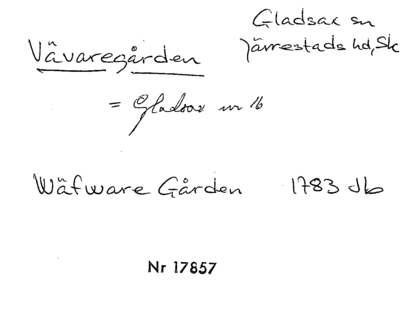 Gladsax sn
Järrestads hd, Sk
Vävaregården
= Gladsax nr 16
Wäfware Gården 1783 Jb
Nr 17857